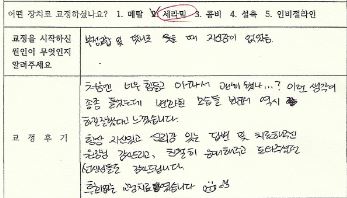 어떤 장치로 교정하셨나요? 1. 메탈 2. 세라믹 3. 콤비 4. 설측 5. 인비절라인
교정을 시작하신
원인이 무엇인지
알려주세요
부정교합 및 덧니로 웃을 때 자신감이 없었음.
교정후기
처음엔 너무 힘들고 아파서 괜히 했나...? 이런 생각이
종종 들었는데 변화된 모습을 보면서 역시
느꼈습니다.
항상 자신있고 있는 답변 및 치료해주신
원장님 감사드리고, 친절히 응대해주고 도와주셨던
선생님들 감사드립니다.
교정치료였습니다